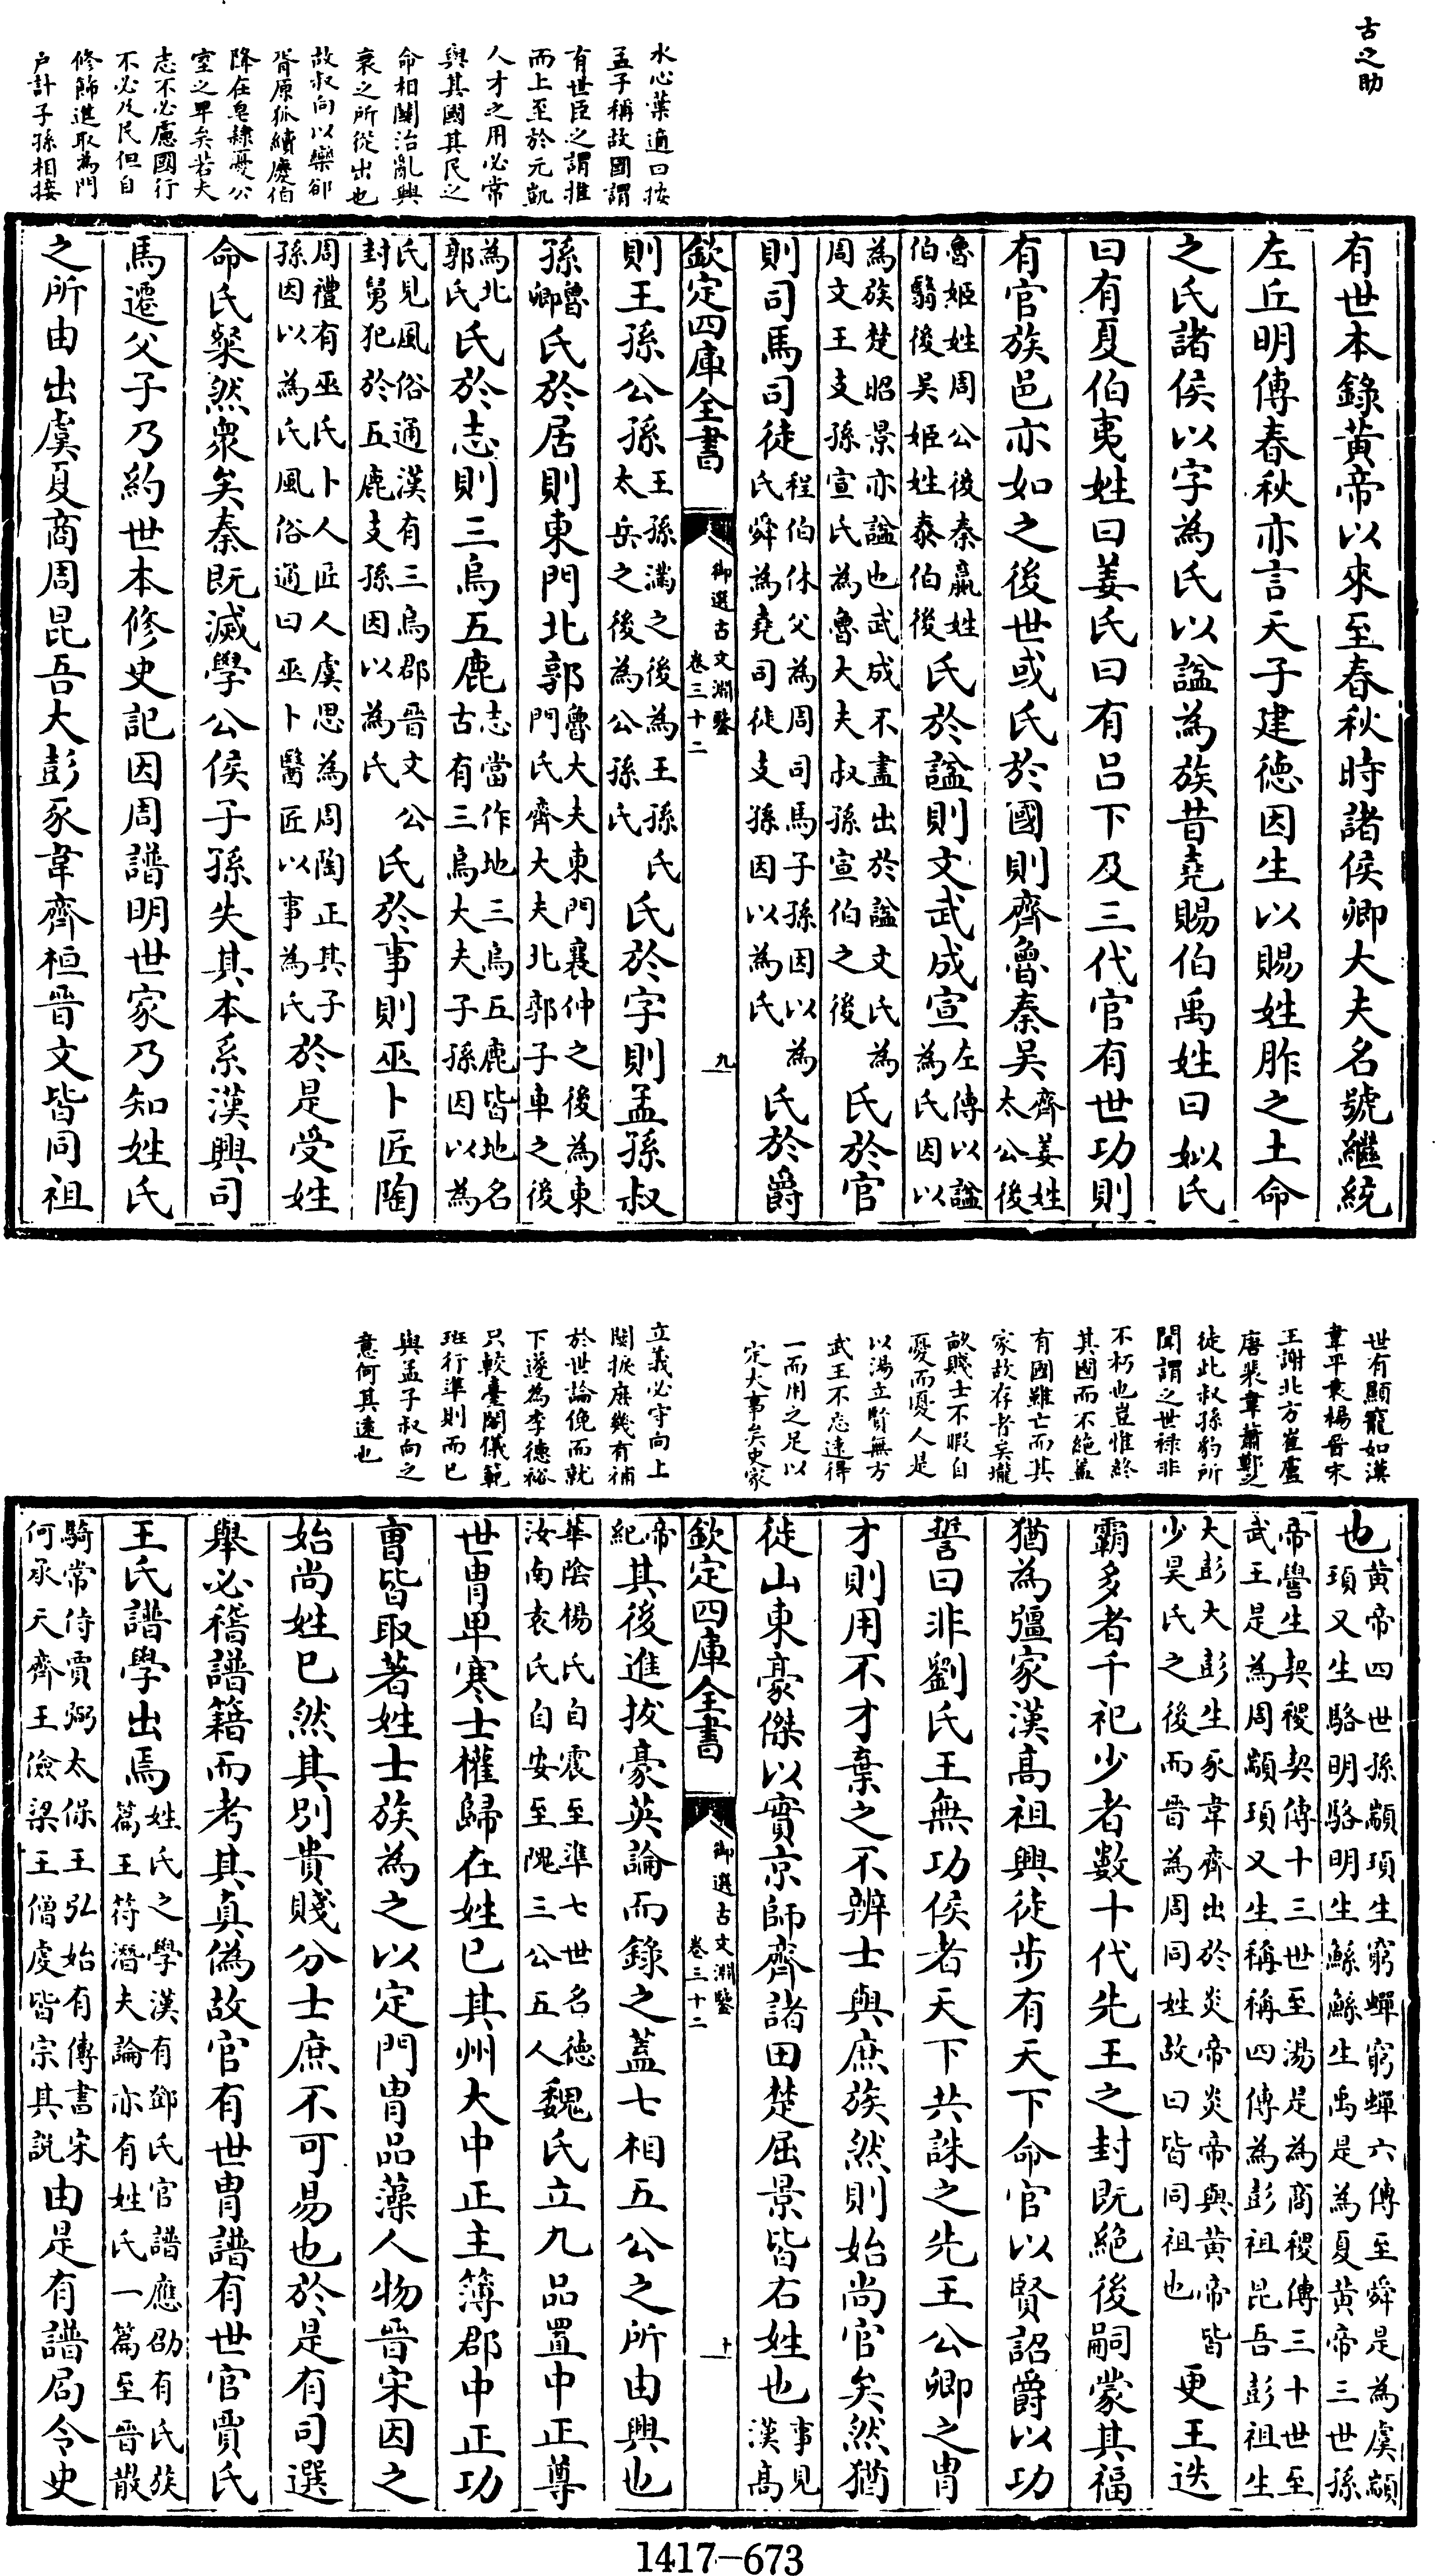 古之助
水心葉適曰按
孟子稱故國謂
有世臣之謂推
而上至於元凱
人才之用必常
與其國其民之
命相關治亂興
衰之所從出也
故叔向以欒郤
胥原狐續慶伯
降在皂隷憂公
室之卑矣若夫
志不必慮國行
不必及民但自
修飾進取為門
户計子孫相接
有世本錄黃帝以來至春秋時諸侯卿大夫名號繼統
左丘明傳春秋亦言天子建德因生以賜姓胙之土命
之氏諸侯以字為氏以諡為族昔堯賜伯禹姓曰姒氏
曰有夏伯夷姓曰姜氏曰有呂下及三代官有世功則
有官族邑亦如之後世或氏於國則齊魯秦吳齊姜姓太公後
魯姬姓周公後秦嬴姓伯翳後吳姬姓泰伯後氏於諡則文武成宣左傳以諡為氏因以
為族楚昭景亦諡也武成不盡出於諡文氏為周文王支孫宣氏為魯大夫叔孫宣伯之後氏於官
則司馬司徒程伯休父為周司馬子孫因以為氏舜為堯司徒支孫因以為氏氏於爵
欽定四庫全書
御選古文淵鑒
卷三十二
九
則王孫公孫王孫滿之後為王孫氏太岳之後為公孫氏氏於字則孟孫叔
孫魯卿氏於居則東門北郭魯大夫東門襄仲之後為東門氏齊大夫北郭子車之後
為北郭氏氏於志則三烏五鹿志當作地三烏五鹿皆地名古有三烏大夫子孫因以為
氏見風俗通漢有三烏郡晉文公封舅犯於五鹿支孫因以為氏氏於事則巫卜匠陶
周禮有巫氏卜人匠人虞思為周陶正其子孫因以為氏風俗通曰巫卜醫匠以事為氏於是受姓
命氏粲然衆矣秦既滅學公侯子孫失其本系漢興司
馬遷父子乃約世本修史記因周譜明世家乃知姓氏
之所由出虞夏商周昆吾大彭豕韋齊桓晉文皆同祖
世有顯寵如漢
韋平袁楊晉宋
王謝北方崔盧
唐裴韋蕭鄭之
徒此叔孫豹所
聞謂之世祿非
不朽也豈惟終
其國而不絕蓋
有國雖亡而其
家故存者矣壠
畝賤士不暇自
憂而憂人是
以湯立賢無方
武王不忘遠得
一而用之足以
定大事矣史家
立義必守向上
關捩庶幾有補
於世論俛而就
下遂為李德裕
只較臺閣儀範
班行準則而已
與孟子叔向之
意何其遠也
也黃帝四世孫顓頊生窮蟬窮蟬六傳至舜是為虞顓頊又生駱明駱明生鯀鯀生禹是為夏黃帝三世孫
帝嚳生契稷契傳十三世至湯是為商稷傳三十世至武王是為周顓頊又生稱稱四傳為彭祖昆吾彭祖生
大彭大彭生豕韋齊出於炎帝炎帝與黃帝皆少昊氏之後而晉為周同姓故曰皆同祖也更王迭
霸多者千祀少者數十代先王之封既絕後嗣蒙其福
猶為彊家漢高祖興徒步有天下命官以賢詔爵以功
誓曰非劉氏王無功侯者天下共誅之先王公卿之胄
才則用不才棄之不辨士與庶族然則始尚官矣然猶
徙山東豪傑以實京師齊諸田楚屈景皆右姓也事見漢高
欽定四庫全書
御選古文淵鑒
卷三十二
十
帝紀其後進拔豪英論而錄之蓋七相五公之所由興也
華陰楊氏自震至準七世名德汝南袁氏自安至隗三公五人魏氏立九品置中正尊
世胄卑寒士權歸在姓已其州大中正主簿郡中正功
曹皆取著姓士族為之以定門胄品藻人物晉宋因之
始尚姓已然其別貴賤分士庶不可易也於是有司選
舉必稽譜籍而考其真偽故官有世胄譜有世官賈氏
王氏譜學出焉姓氏之學漢有鄧氏官譜應劭有氏族篇王符潛夫論亦有姓氏一篇至晉散
騎常侍賈弼太保王弘始有傳書宋何承天齊王儉梁王僧虔皆宗其說由是有譜局令史
1417-673